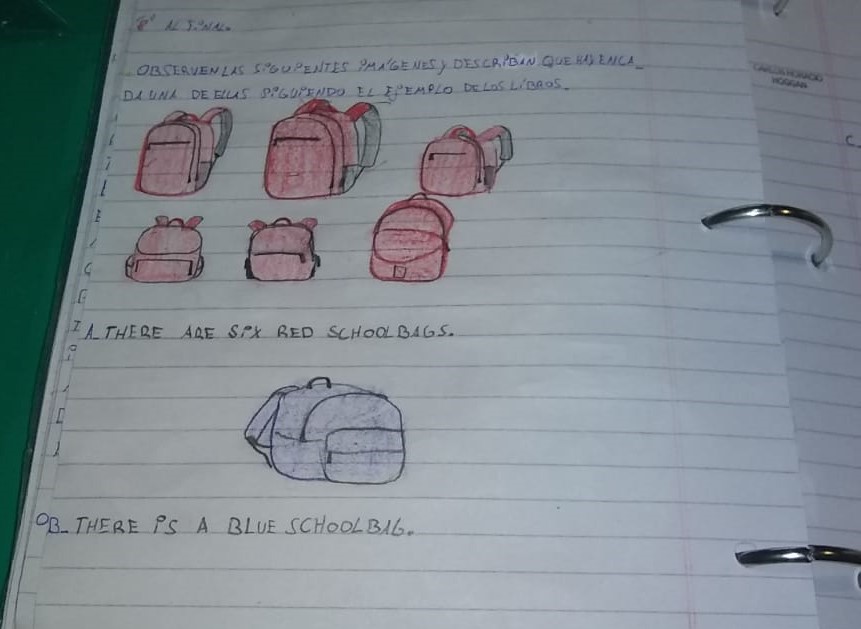 AL FINAL.
OBSERVEN LAS SIGUIENTES IMÁGENES Y DESCRIBAN QUE HAY EN CA_
DA UNA DE ELLAS SIGUIENDO EL EJEMPLO DE LOS LIBROS_
A_ THERE ARE SIX RED SCHOOLBAGS.
B_ THERE IS A BLUE SCHOOLBAG.
C_